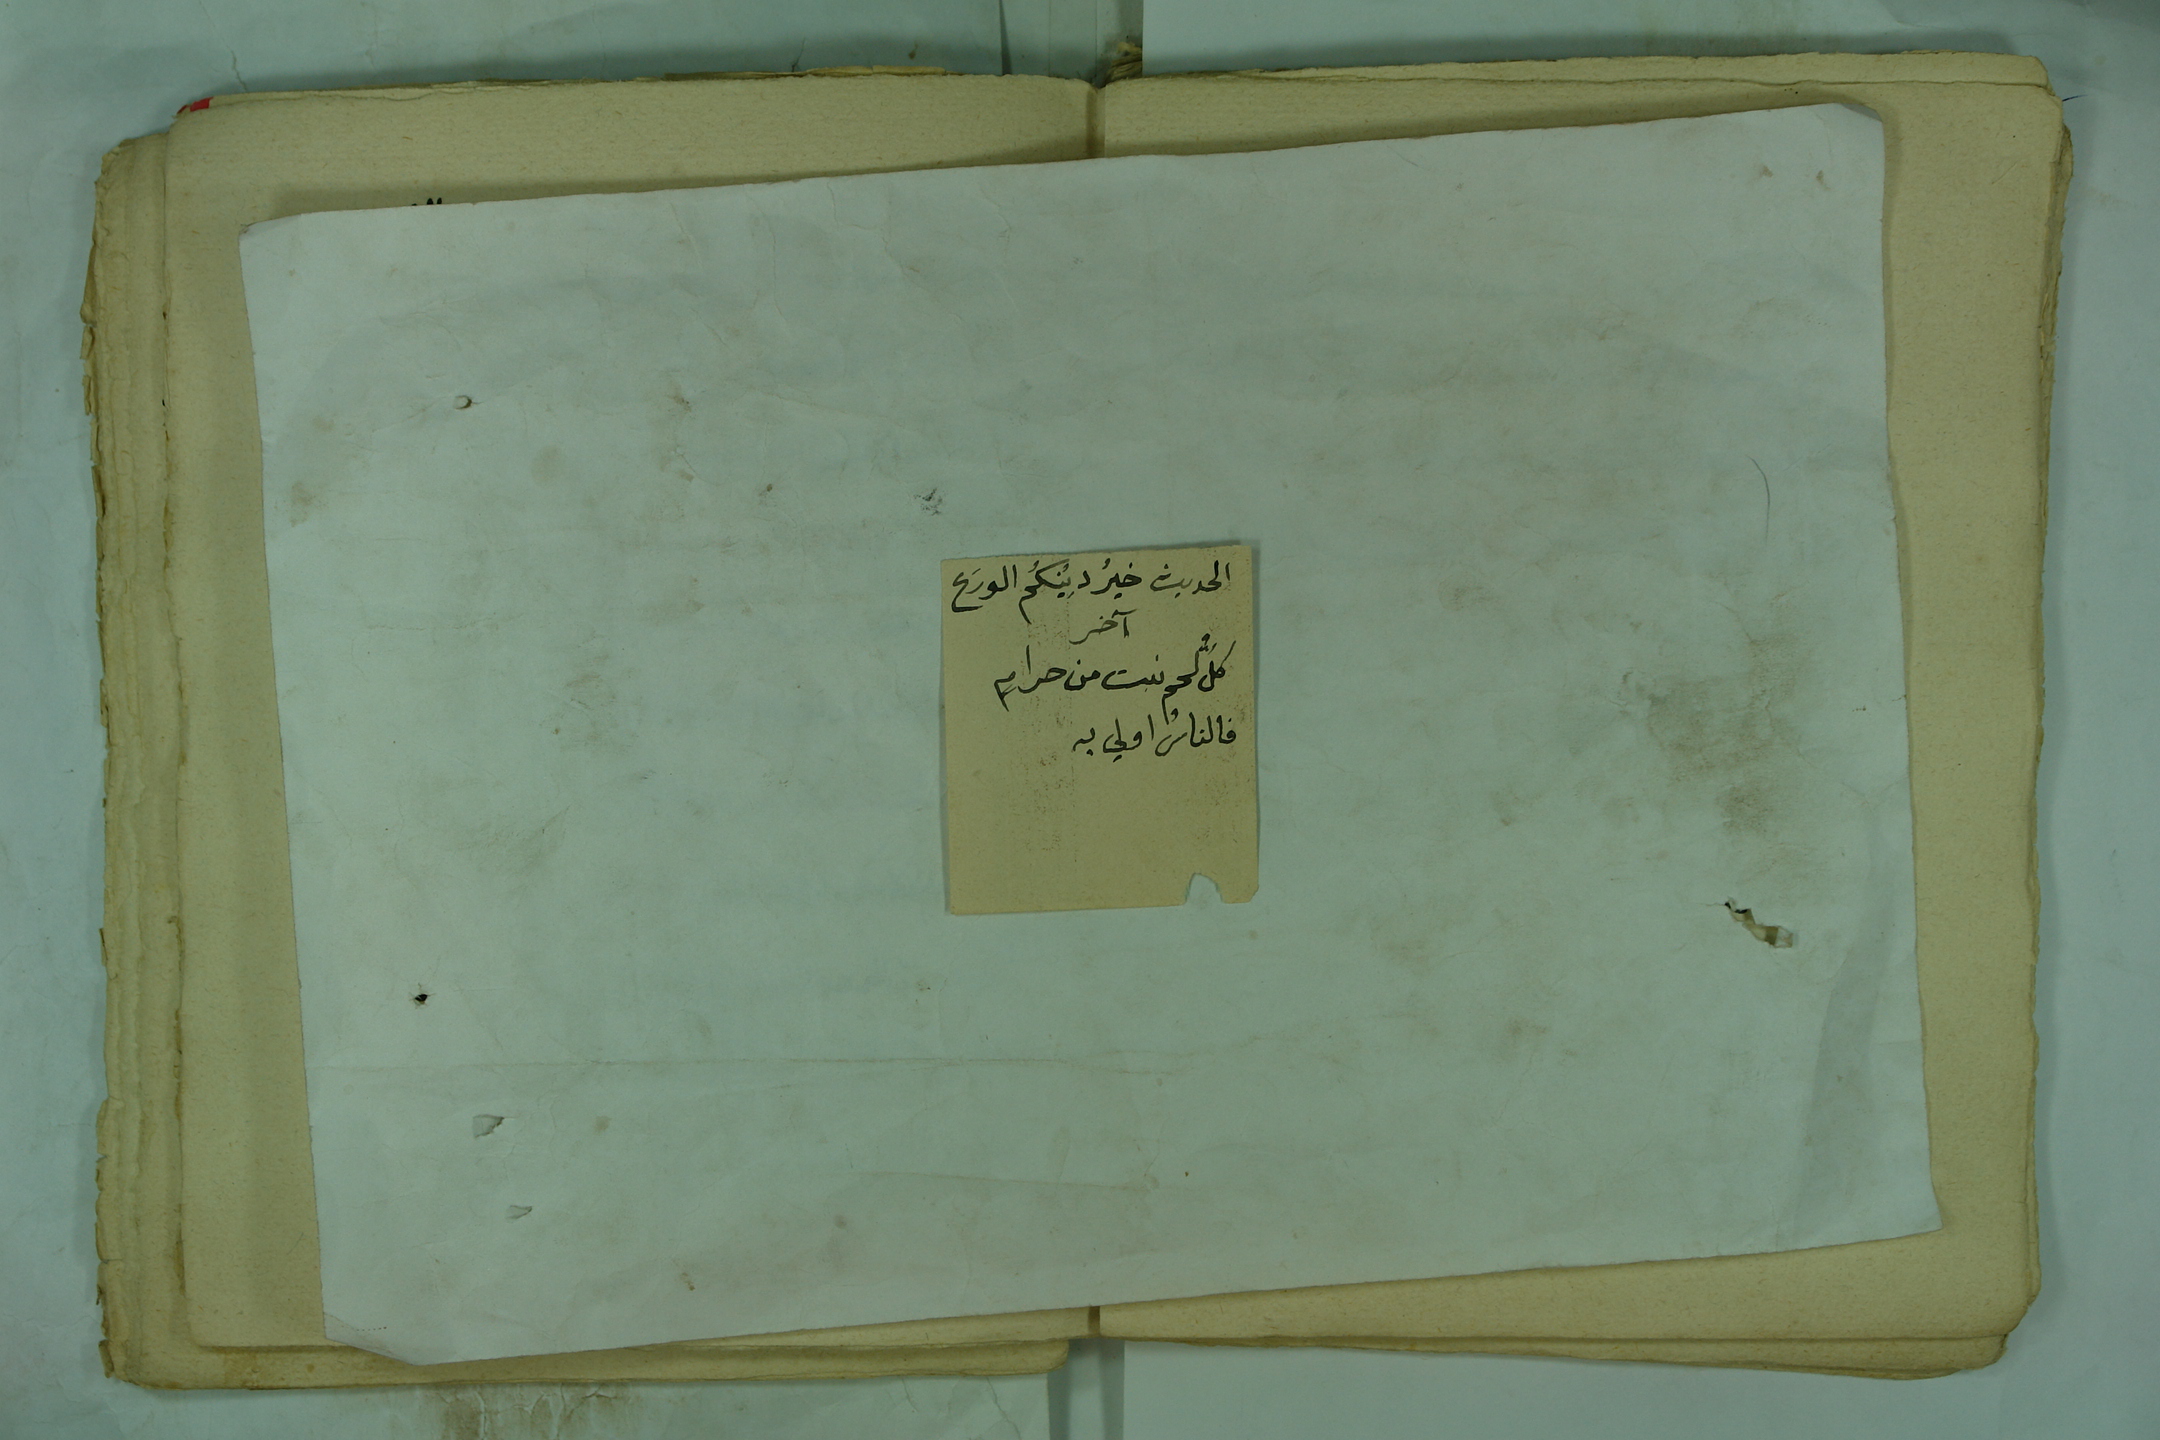 الحديث خيرُ دِيْنِكُم الورَع
آخر
كلُّ لحمٍ نبت من حرامٍ
فالناسُ اولي به